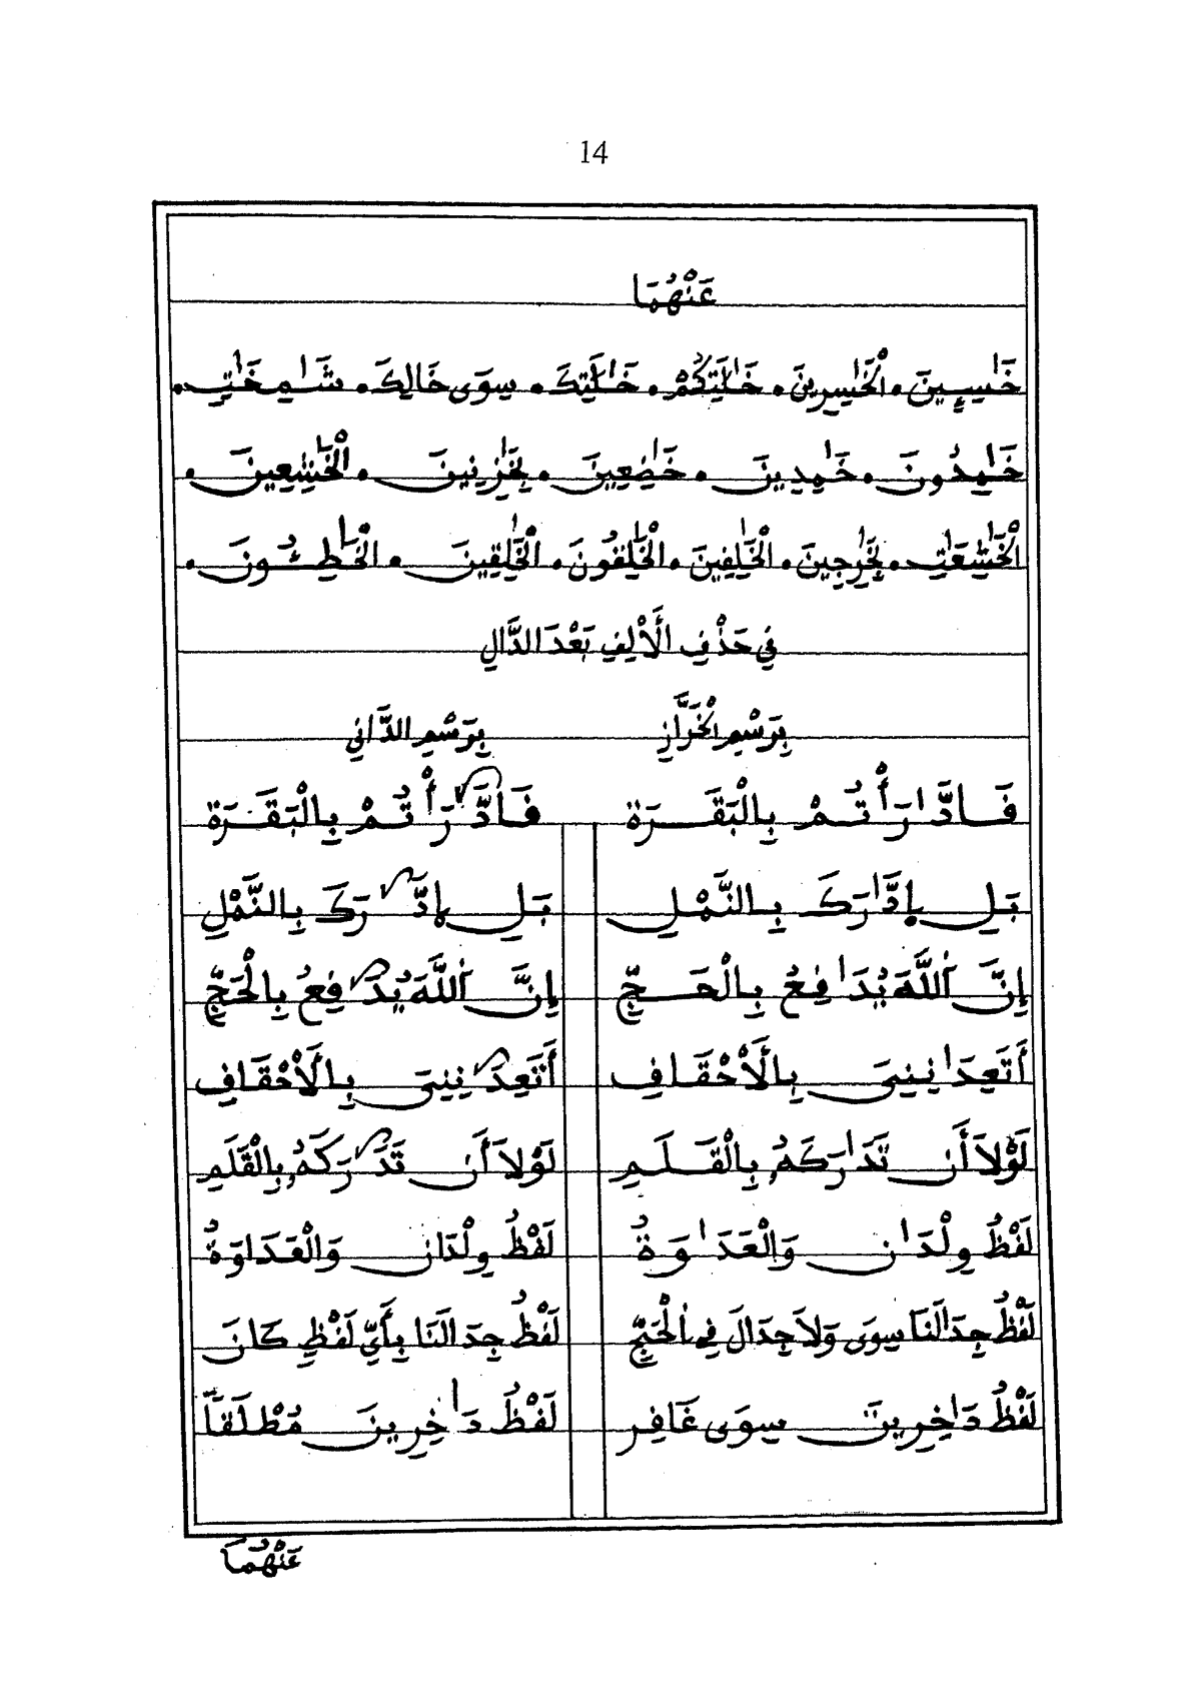 14
عَنْهُمَا
خَٰسِـِٕينَ • الْخَٰسِرِينَ • خَٰلَٰتِكُمْ • خَٰلَٰتِكَ • سِوَى خَالِكَ • شَٰمِخَٰتٍ •
خَٰمِدُونَ • خَٰمِدِينَ • خَٰضِعِينَ • بِخَٰزِنِينَ • الْخَٰشِعِينَ •
الْخَٰشِعَٰتِ • بِخَٰرِجِينَ • الْخَٰلِفِينَ • الْخَٰلِقُونَ • الْخَٰلِقِينَ • الْخَٰطِـُٔونَ •
فِي حَذْفِ الْأَلِفِ بَعْدَ الدَّالِ
بِرَسْمِ الْخَرَّازِ بِرَسْمِ الدَّانِي
فَادَّٰرَأْتُمْ بِالْبَقَرَةِ فَادَّٰرَأْتُمْ بِالْبَقَرَةِ
بَلِ إِدَّٰرَكَ بِالنَّمْلِ بَلِ إِدَّٰرَكَ بِالنَّمْلِ
إِنَّ اَللَّهَ يُدَٰفِعُ بِالْحَجِّ إِنَّ اَللَّهَ يُدَٰفِعُ بِالْحَجِّ
أَتَعِدَٰنِنِىَ بِالْأَحْقَافِ أَتَعِدَٰنِنِىَ بِالْأَحْقَافِ
لَوْلَا أَن تَدَٰرَكَهُ بِالْقَلَمِ لَوْلَا أَن تَدَٰرَكَهُ بِالْقَلَمِ
لَفْظُ وِلْدَٰن وَالْعَدَٰوَةُ لَفْظُ وِلْدَان وَالْعَدَاوَةُ
لَفْظُ جِدَٰلَنَا سِوَى وَلَا جِدَالَ فِي اَلْحَجِّ لَفْظُ جِدَالَنَا بِأَيِّ لَفْظٍ كَانَ
لَفْظُ دَٰخِرِينَ سِوَى غَافِر لَفْظُ دَٰخِرِينَ مُطْلَقاً
عَنْهُمَا